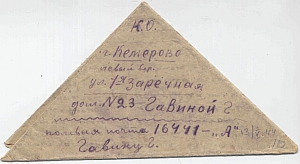 К.О.
г. Кемерово
левый бер.
ул. 1я Заречная
дом №23 Гавиной Г.
полевая почта 16441-„А"
Гавину Г.